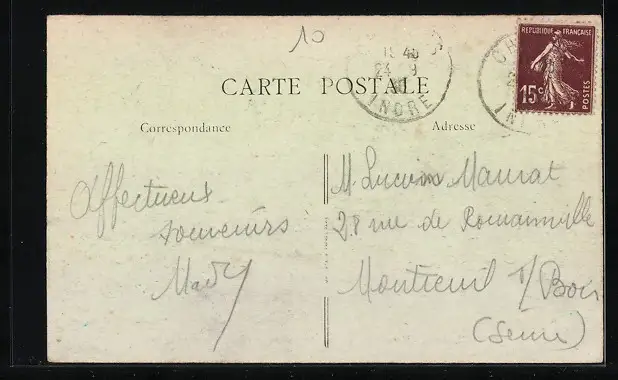 10
CH
IN
19 40
24 9
30
INDRE
REPUBLIQUE FRANÇAISE
15c
POSTES
CARTE POSTALE
Correspondance
Adresse
Affectueux
souvenirs
Mady
M. Lucien Maurat
28 rue de Romainville
Montreuil s/Bois
(Seine)